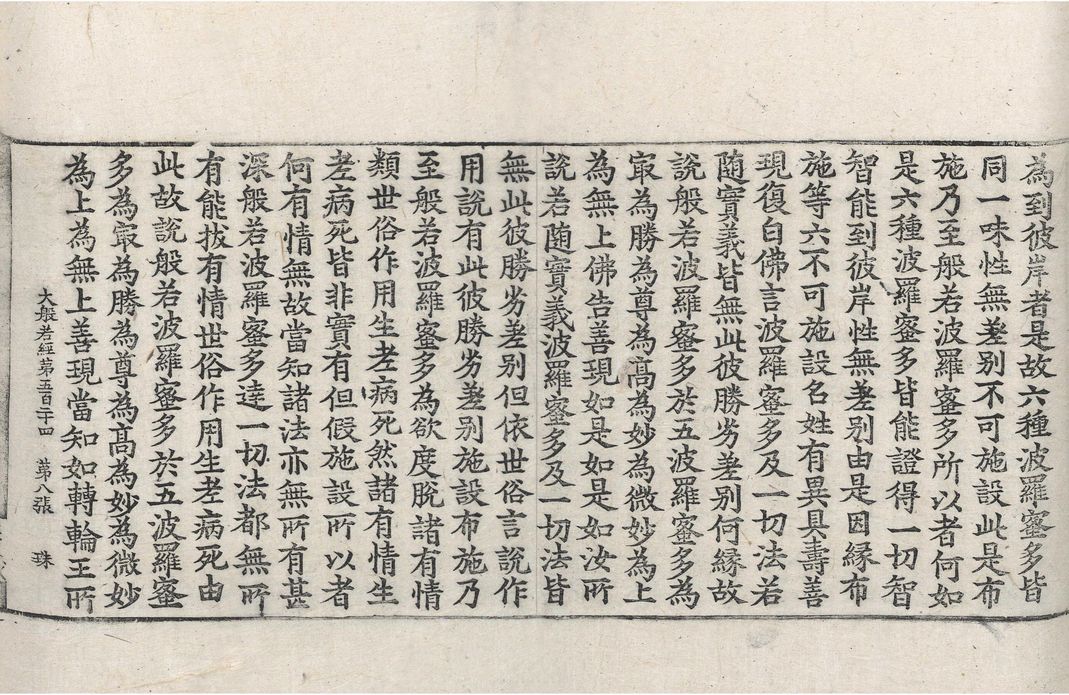 為到彼岸者是故六種波羅蜜多皆
同一味性無差别不可施設此是布
施乃至般若波羅蜜多所以者何如
是六種波羅蜜多皆能證得一切智
智能到彼岸性無差别由是因緣布
施等六不可施設名姓有異具壽善
現復白佛言波羅蜜多及一切法若
随實義皆無此彼勝劣差别何緣故
說般若波羅蜜多於五波羅蜜多為
冣為勝為尊為高為妙為微妙為上
為無上佛告善現如是如是如汝所
說若随實義波羅蜜多及一切法皆
無此彼勝劣差别但依世俗言說作
用說有此彼勝劣差别施設布施乃
至般若波羅蜜多為欲度脫諸有情
類世俗作用生老病死然諸有情生
老病死皆非實有但假施設所以者
何有情無故當知諸法亦無所有甚
深般若波羅蜜多達一切法都無所
有能拔有情世俗作用生老病死由
此故說般若波羅蜜多於五波羅蜜
多為冣為勝為尊為高為妙為微妙
為上為無上善現當知如轉輪王所
大般若經第五百二十四 第八張 珠